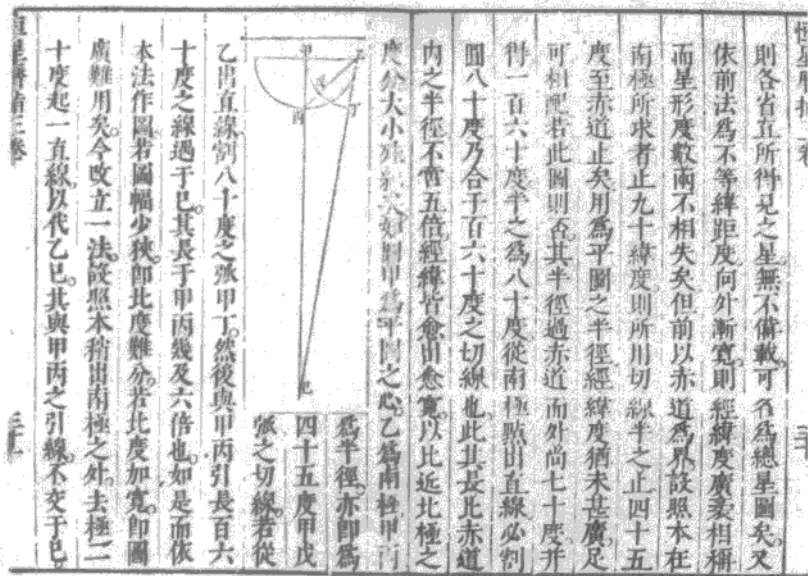 則各省直所得見之星無不備載可各爲總星圖矣又
依前法爲不等緯距度向外漸寬則經緯度廣袤相稱
而星形度數兩不相失矣但前以赤道爲界設照本在
南極所求者止九十緯度則所用切線半之止四十五
度至赤道止矣用爲平圖之半徑經緯度猶未甚廣足
可相配若此圖則否其半徑過赤道而外尚七十度并
得一百六十度半之爲八十度從南極點出直線必割
圓八十度乃合于百六十度之切線也此其長比赤道
內之半徑不啻五倍經緯皆愈出愈寬以比近北極之
度分大小殊
甲爲平圖之心乙爲南極甲丙
爲半徑亦卽爲
四十五度甲戊
弧之切線若從
乙出直線割八十度之弧甲丁然後與甲丙引長百六
十度之線遇于己其長于甲丙幾及六倍也如是而依
本法作圖若圖幅少狹卽此度難分若此度加寬卽圖
廣難用矣今改立一法設照本稍出南極之外去極二
十度起一直線以代乙己其與甲丙之引線不交于己
甲
乙
丙
丁
戊
己